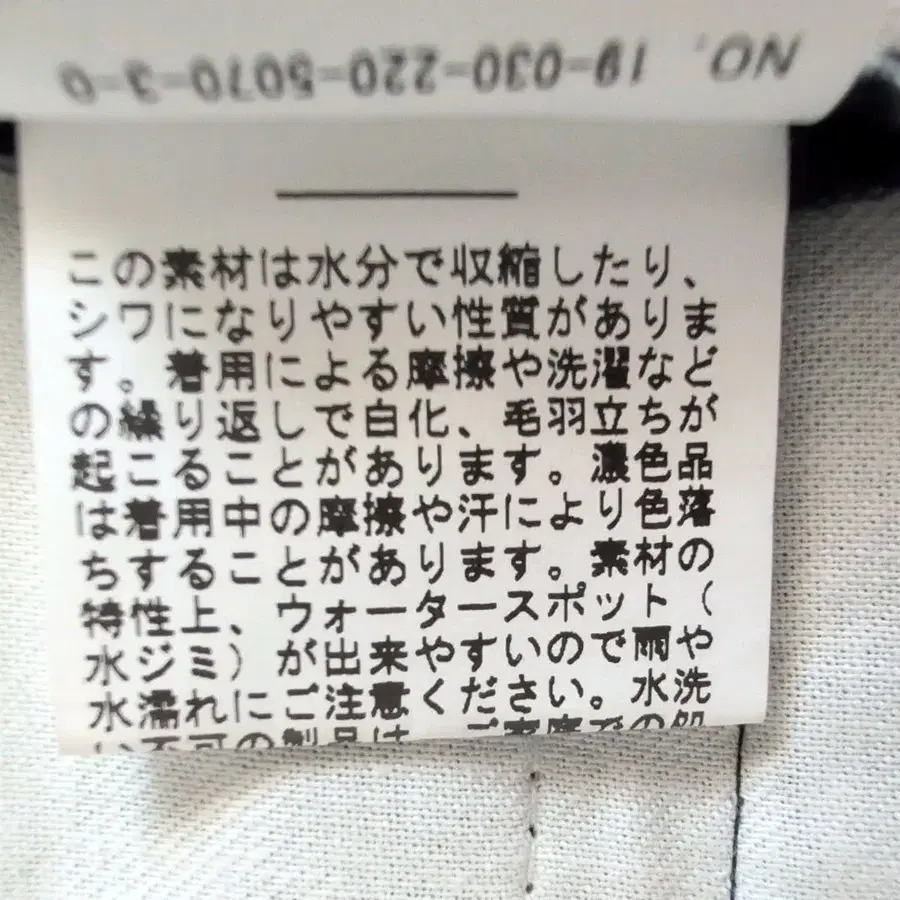 NO. 19-030-220-5070-3-0
この素材は水分で収縮したり、
シワになりやすい性質がありま
す。着用による摩擦や洗濯など
の繰り返しで白化、毛羽立ちが
起こることがあります。濃色品
は着用中の摩擦や汗により色落
ちすることがあります。素材の
特性上、ウォータースポット(
水ジミ)が出来やすいので雨や
水濡れにご注意ください。水洗
い不可の製品は、ご家庭での処